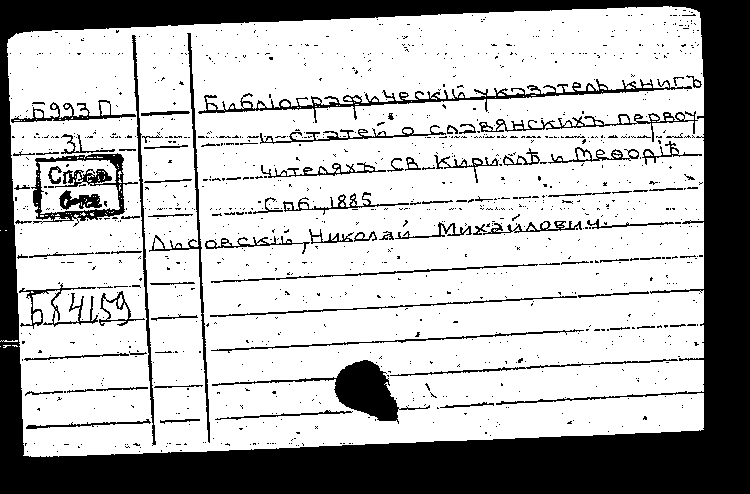 Б993 П
31
Справ.
б-ка.
Б84159
Библіографическій указатель книгъ
и статей о славянскихъ первоу-
чителяхъ св. Кириллѣ и Меѳодіѣ
Спб., 1885
Лисовскій, Николай Михайлович.